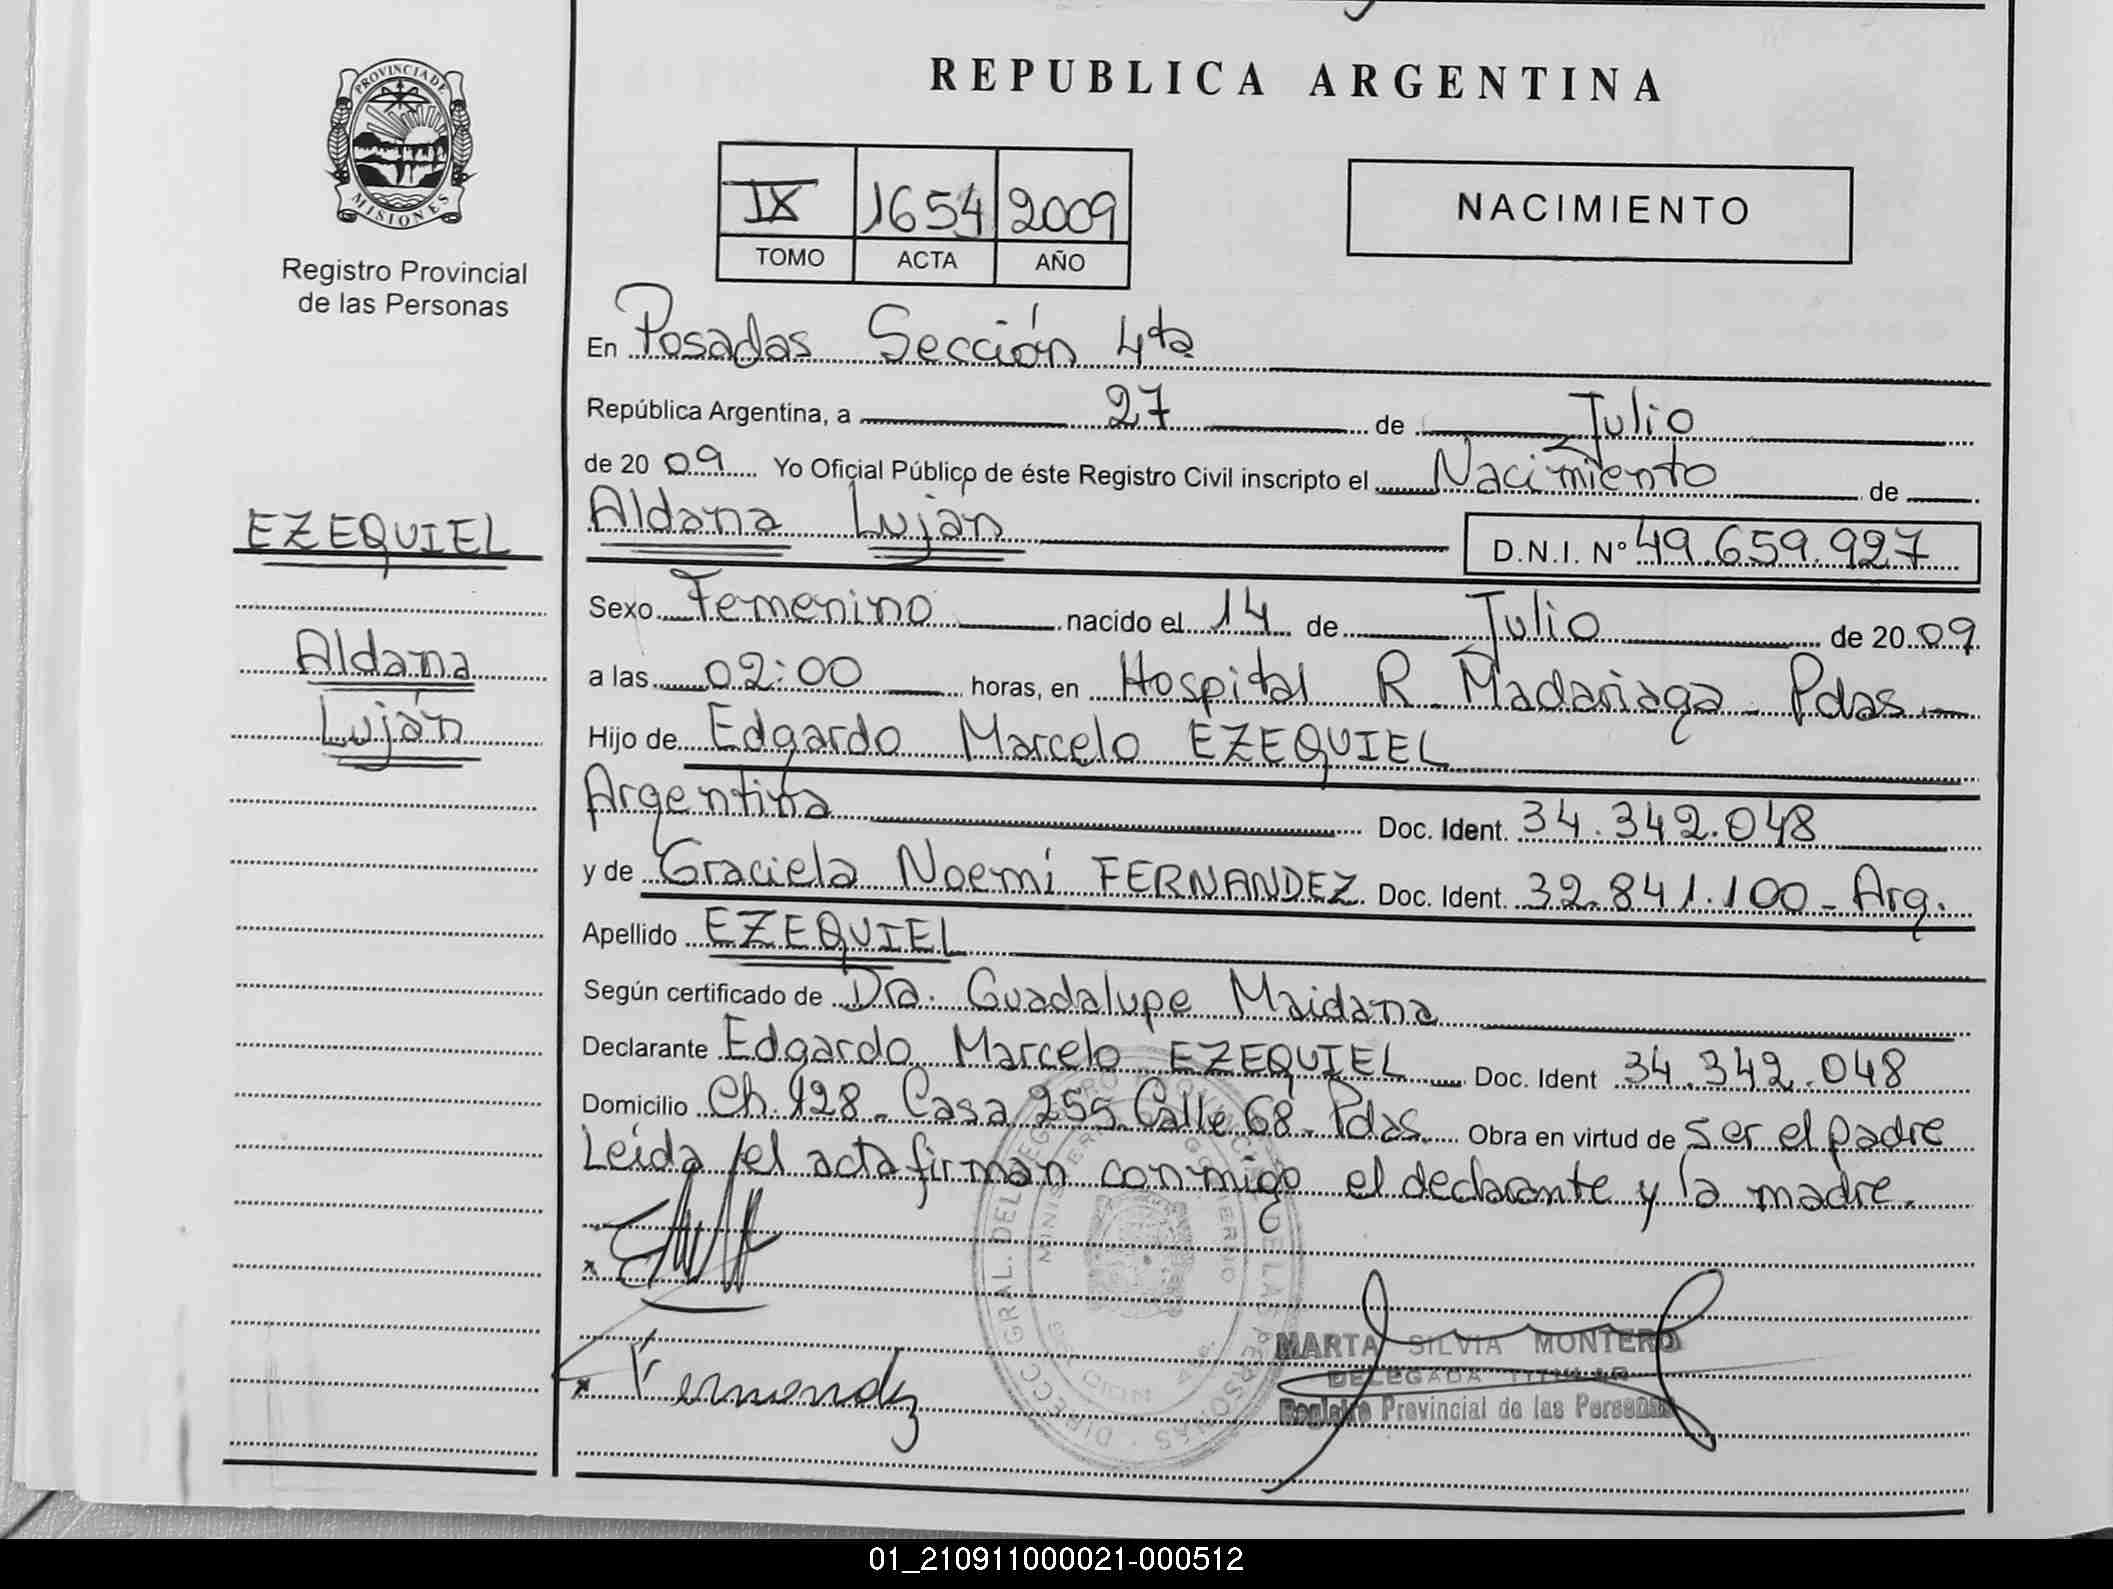 PROVINCIA DE
MISIONES
Registro Provincial
de las Personas
EZEQUIEL
Aldana
Luján
REPUBLICA ARGENTINA
IX 1654 2009
TOMO ACTA AÑO
NACIMIENTO
En Posadas Sección 4ta
República Argentina, a 27 de Julio
de 2009 Yo Oficial Público de éste Registro Civil inscripto el Nacimiento de
Aldana Luján D.N.I. Nº 49.659.927
Sexo Femenino nacido el 14 de Julio de 2009
a las 02:00 horas, en Hospital R. Madariaga - Pdas.-
Hijo de Edgardo Marcelo EZEQUIEL
Argentina Doc. Ident. 34.342.048
y de Graciela Noemí FERNANDEZ Doc. Ident. 32.841.100 - Arg.
Apellido EZEQUIEL
Según certificado de Dra. Guadalupe Maidana
Declarante Edgardo Marcelo EZEQUIEL Doc. Ident 34.342.048
Domicilio Ch. 128 - Casa 255 Calle 68 - Pdas. Obra en virtud de ser el padre
Leída el acta firman conmigo el declarante y la madre.
MARTA SILVIA MONTERO
DELEGADA TITULAR
Registro Provincial de las Personas
01_210911000021-000512